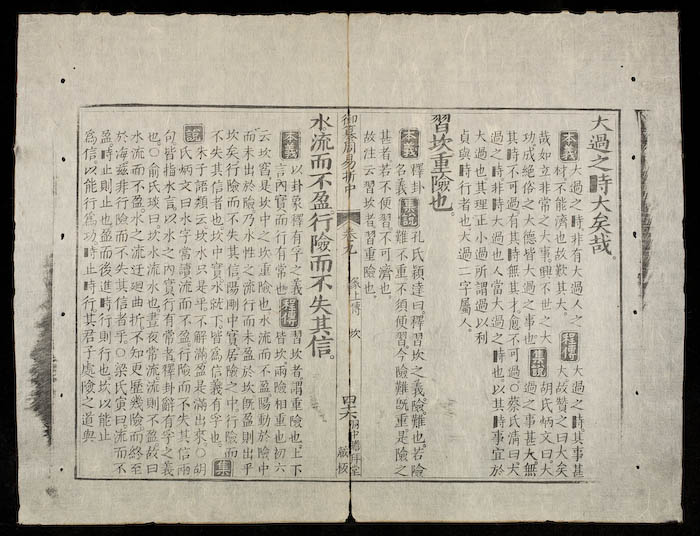 大過之時大矣哉。
本義 大過之時非有大過人之
材不能濟也故歎其大。 程傳 大過之時其事甚
大故贊之曰大矣
哉如立非常之大事。興不世之大
功成絕俗之大德皆大過之事也 集說 胡氏炳文曰大
過之事甚大無
其時不可過有其時無其才。愈不可過○蔡氏清曰大
過之時非時大過也人當大過之時也以其時事宜於
大過也其理正小過所謂過以利
貞與時行者也大過二字屬人。
習坎重險也。
本義 釋卦
名義 集說 孔氏穎達曰。釋習坎之義險難也。若險
難不重不須便習。今險難既重是險之
甚者若不便習不可濟也。
故注云習坎者習重險也。
御纂周易折中 卷九 彖上傳 坎 四六
藏板
水流而不盈行險而不失其信。
本義 以卦象釋有孚之義
言內實而行有常也 程傳 習坎者謂重險也。上下
皆坎兩險相重也初六
云坎窞是坎中之坎重險也水流而不盈陽動於險中
而未出於險乃水性之流行而未盈於坎既盈則出乎
坎矣行險而不失其信陽剛中實居險之中。行險而
不失其信者也坎中實水就下皆爲信義有孚也。 集
說 朱子語類云坎水只是平。不解滿盈是滿出來。○胡
氏炳文曰水字當讀流而不盈行險而不失其信兩
句皆指水言以水之內實行有常者釋卦辭有孚之義
也。○俞氏琰曰坎水流水也。晝夜常流流則不盈故曰
水流而不盈水之流迂廻曲折不知更歷幾險而終至
於海茲非行險而不失其信者乎○梁氏寅曰流而不
盈時止則止也盈而後進時行則行也坎以能止
爲信以能行爲功時止時行其君子處險之道與